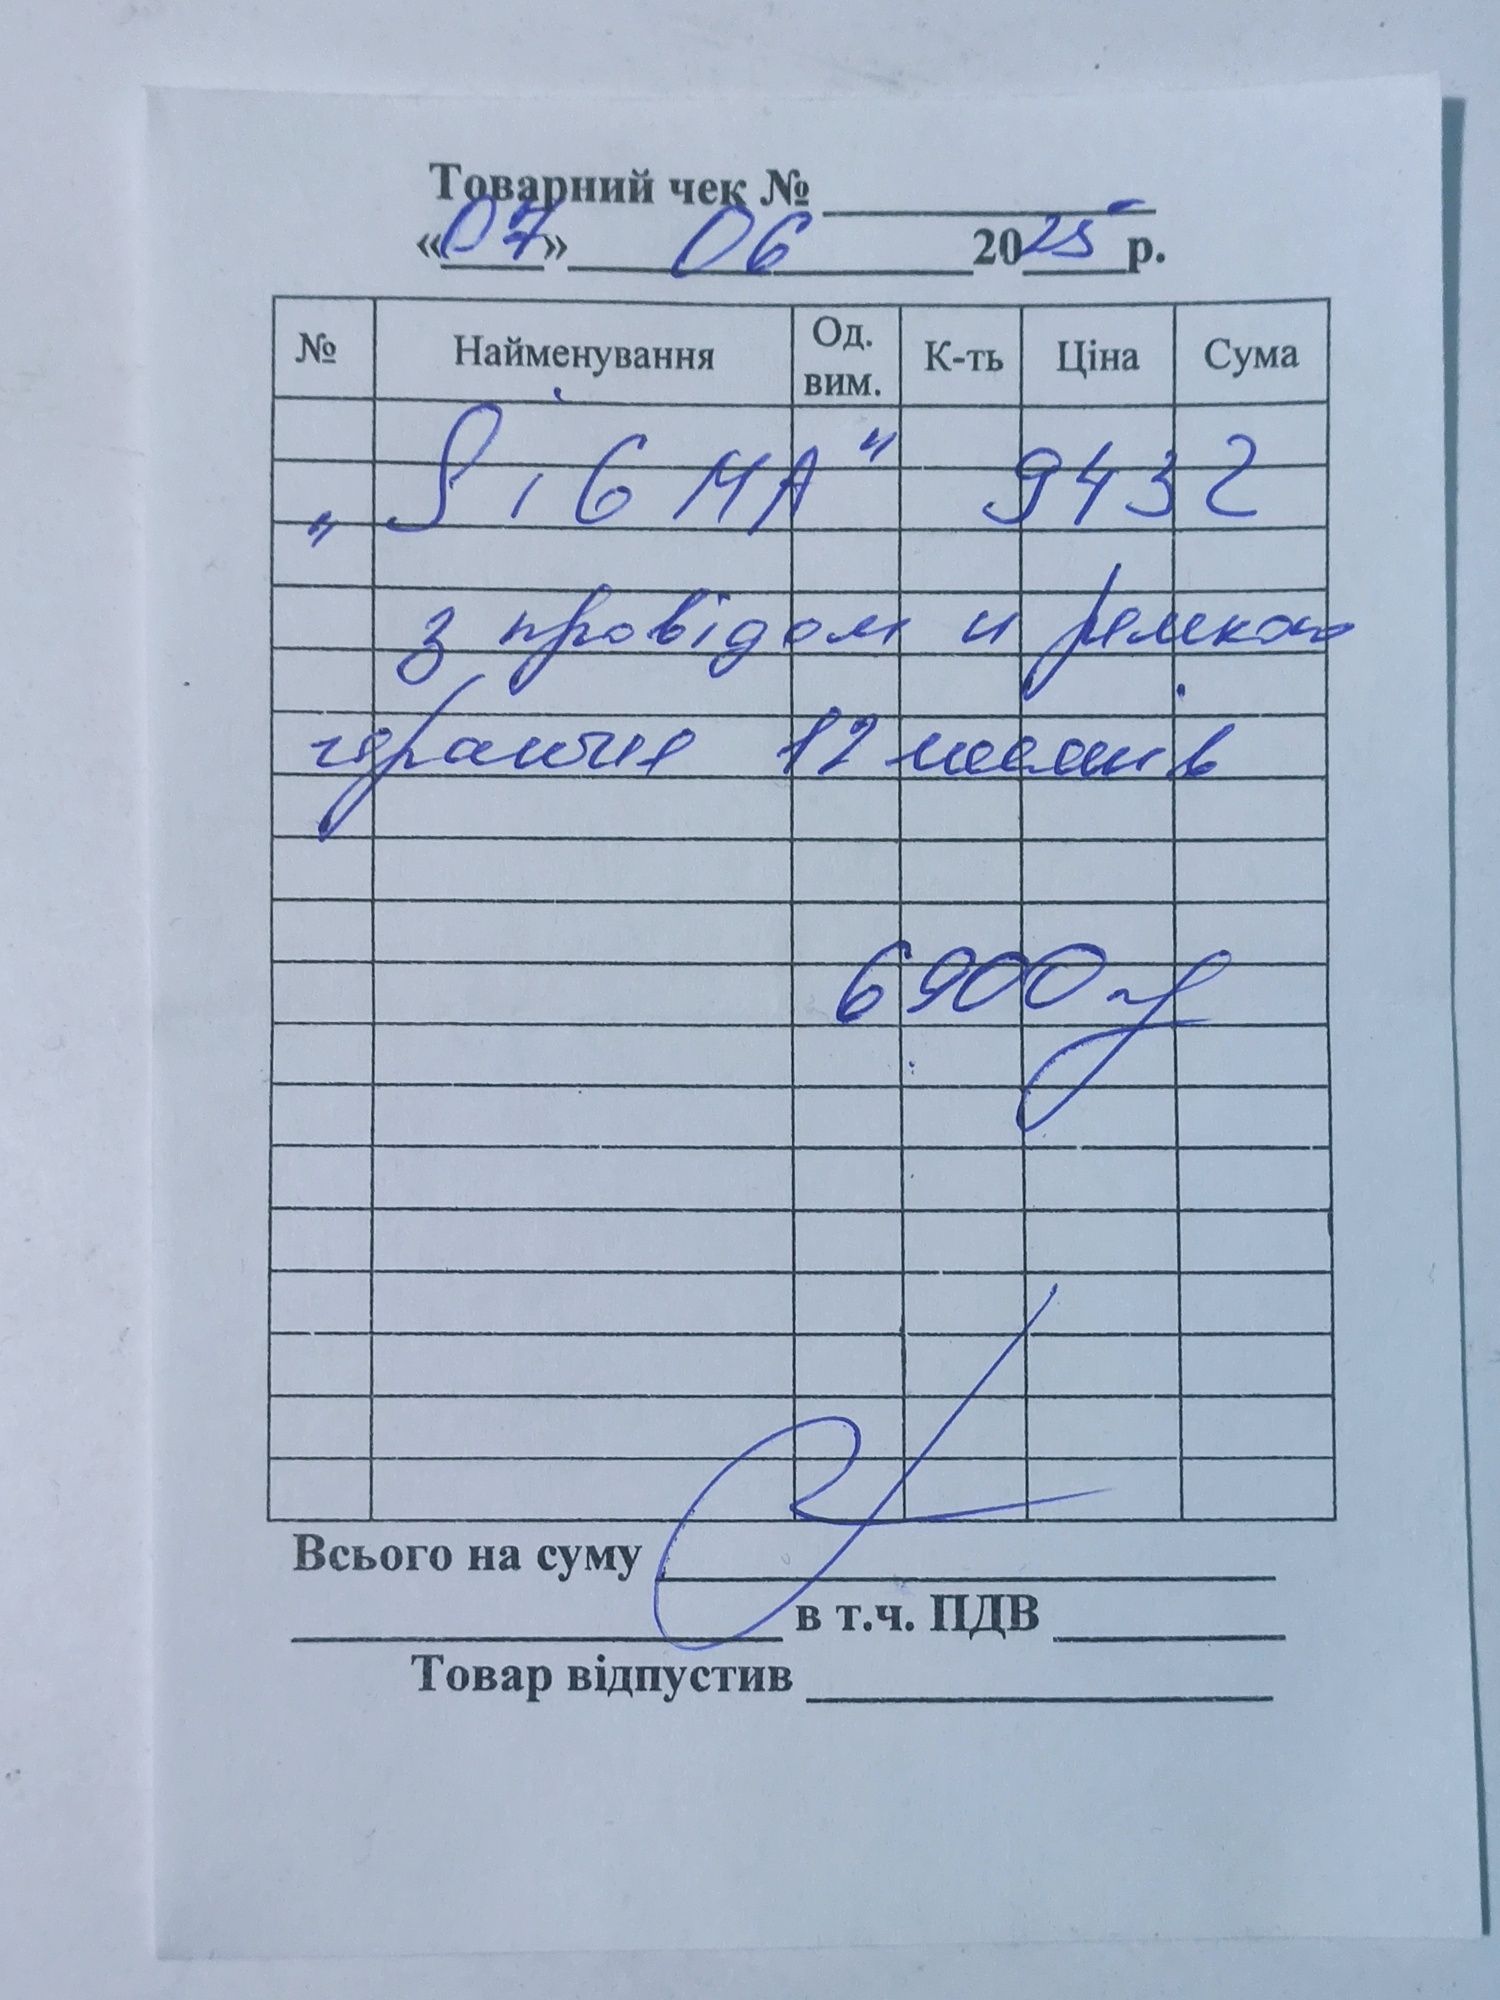 Товарний чек №
«07» 06 2025 р.
№ Найменування Од. вим. К-ть Ціна Сума
„SiGMA" 9432
з провідом и рамкою
гарантія 12 месяців
6900 гр
Всього на суму
в т.ч. ПДВ
Товар відпустив